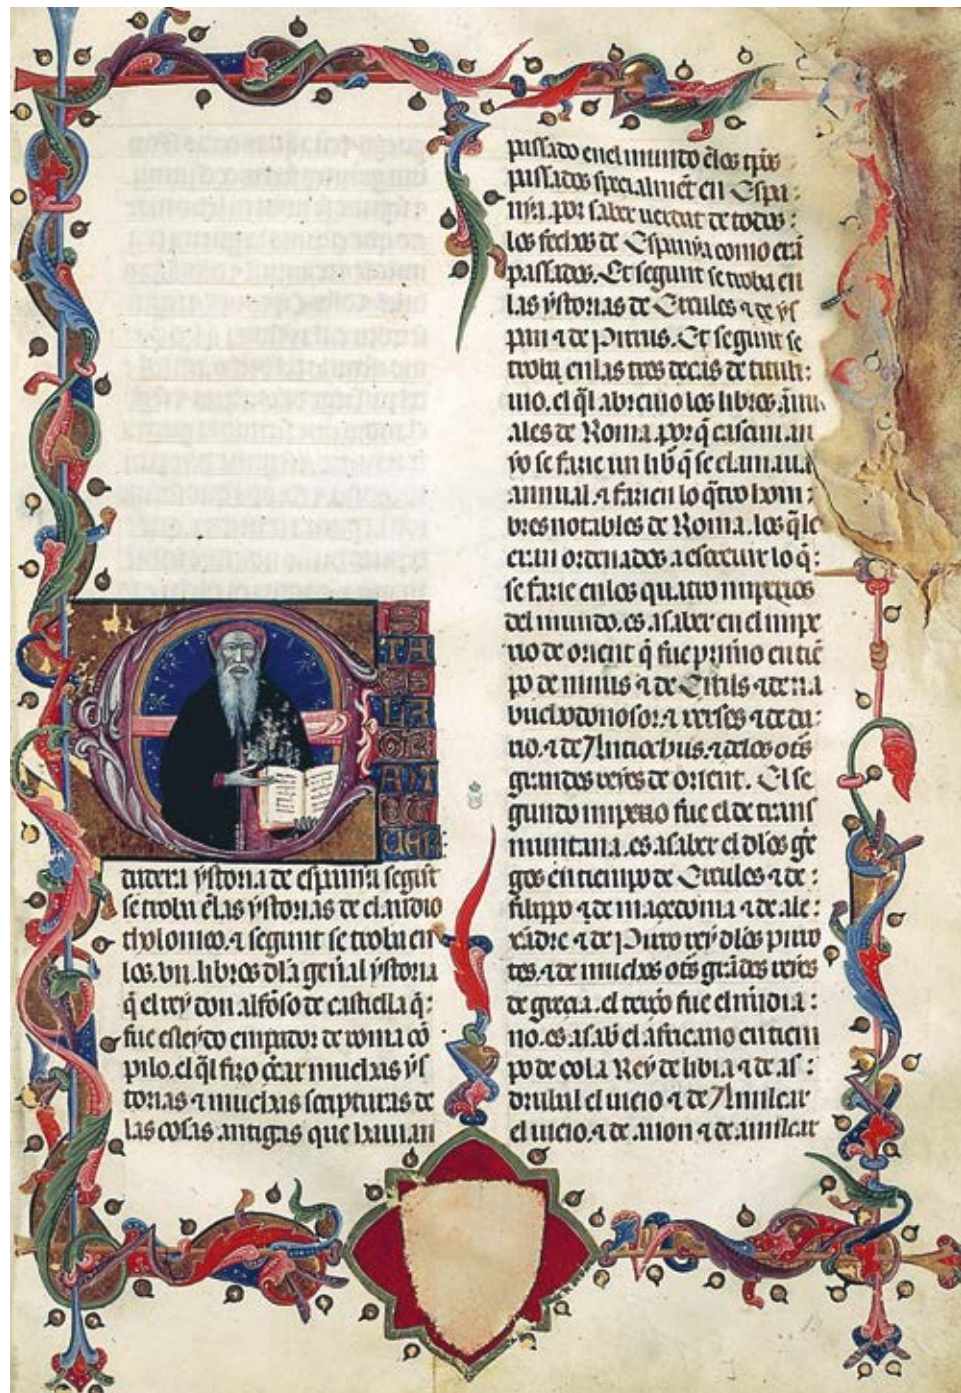 E
S
TA
ES
LA
GR
AN
ET
UER
dadera ystoria de espanya segũt
se troba ẽlas ystorias de claudio
tholonico. ⁊ segunt se troba en
los .vii. libros dla geñal ystoria
q̃ el rey don alfõso de castella q̃:
fue esleydo emṕador de roma cõ
pilo. el q̃l fizo cercar muchas ys
torias ⁊ muchas scripturas de
las cosas antigas que hauian
passado enel mundo ẽlos tp̃os
passados specialmẽt en Espa:
nya por saber uerdat de todos:
los fechos de Espanya como erã
passados. Et segunt se troba en
las ystorias de Ercules ⁊ de ys
pan ⁊ de Pirrus. Et segunt se
troba en las tres decas de tituli
uio. el q̃l abreuio los libros ãnu
ales de Roma. por q̃ cascun an
yo se fazie un lib̃ q̃ se clamaua
annual. ⁊ fazien lo q̃tro hom:
bres notables de Roma. los q̃le
eran ordenados a escreuir lo q̃:
se fazie en los quatro imperios
del mundo. es asaber en el impe
rio de orient q̃ fue primo en tiẽ
po de ninus ⁊ de Cirus ⁊ de na
buchodonosor. ⁊ xerses ⁊ de da:
rio. ⁊ de Antiochus. ⁊ delos ot̃s
grandes reyes de orient. El se
gundo imperio fue el de trans
muntana. es asaber el dlos gre
gos en tiempo de Ercules ⁊ de:
filippo ⁊ de macedonia ⁊ de ale:
xãdre ⁊ de Pirro rey dlos pirro
tes. ⁊ de muchos ot̃s grãdes reyes
de grecia. el terço fue el midia:
no. es asab̃ el africano en tiem
po de cola Rey de libia ⁊ de as:
drubal el uieio ⁊ de Amilcar
el uieio. ⁊ de anon ⁊ de amilcar